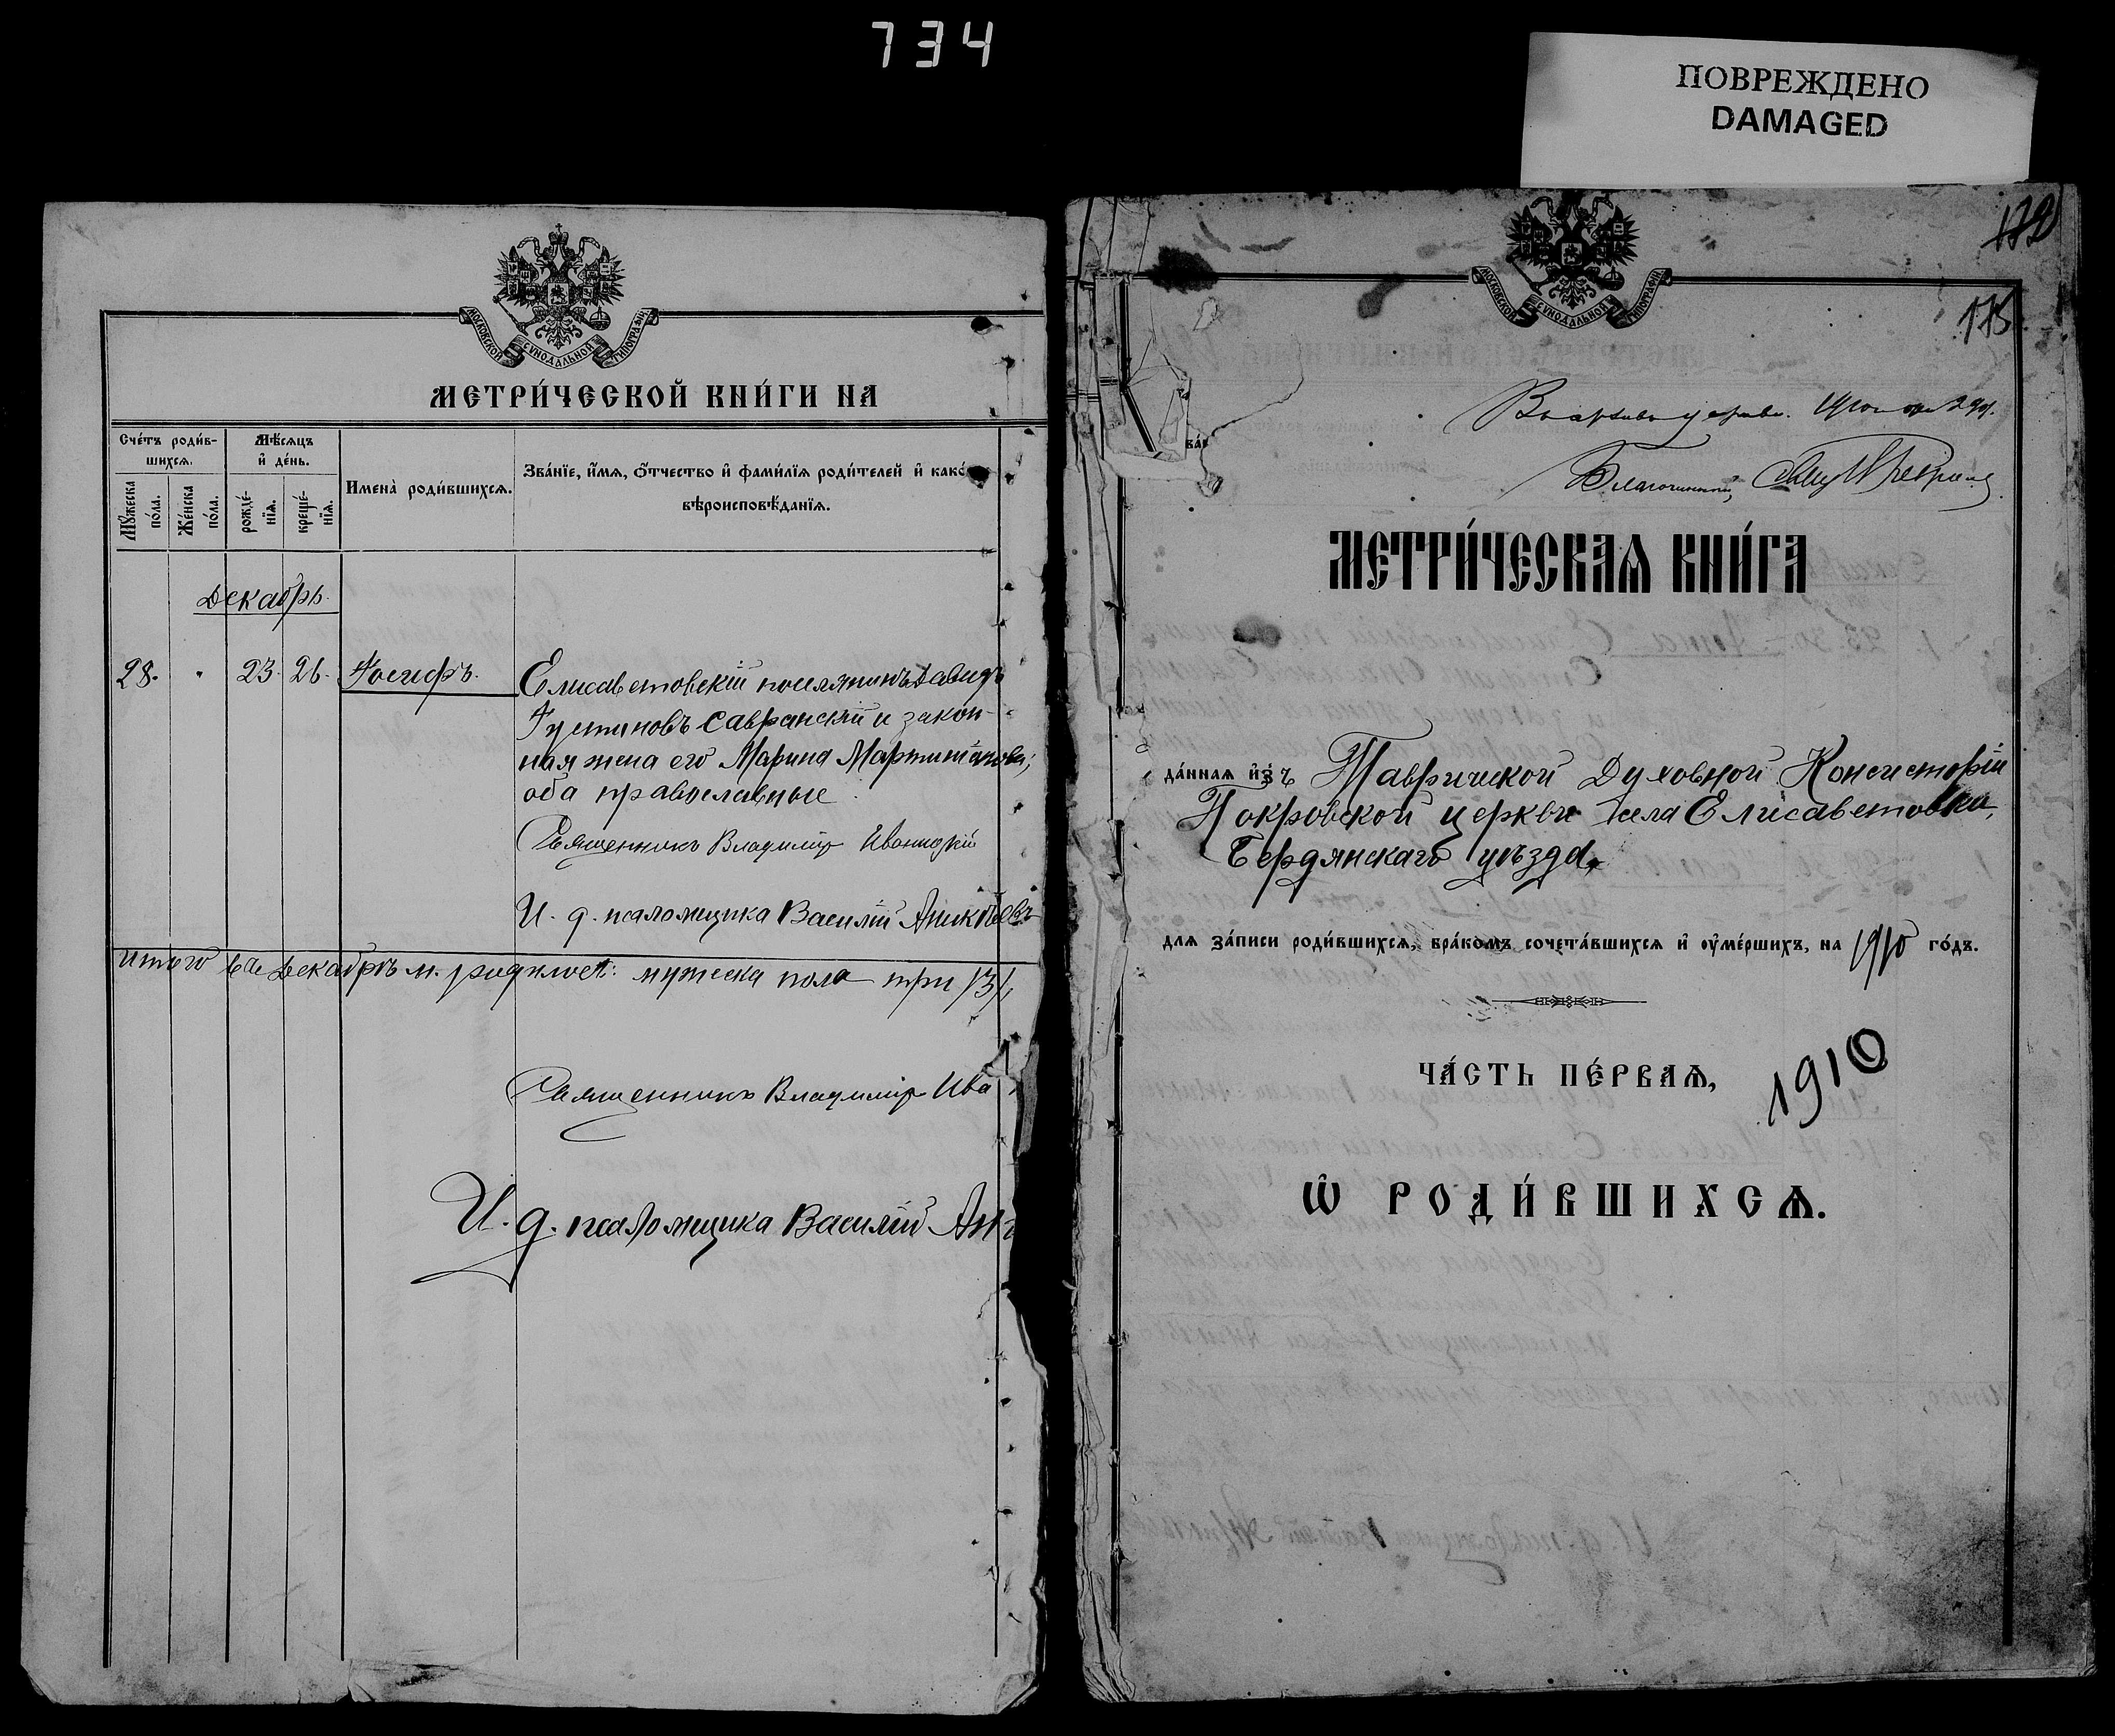 734
ПОВРЕЖДЕНО
DAMAGED
МОСКОВСКОЙ СѴНОДАЛЬНОЙ ТИПОГРАФІИ
МЕТРИ́ЧЕСКОЙ КНИ́ГИ НА
Сче́тъ роди́в-
шихсѧ.
Мѣ́сѧцъ
и҆ де́нь.
Мꙋ́жеска
по́ла.
Же́нска
по́ла.
рожде́-
нїѧ.
креще́-
нїѧ.
Имена̀ роди́вшихсѧ.
Зва́нїе, и҆́мѧ, ѻ҆́тчество и҆ фами́лїѧ роди́телей и҆ како́
вѣроисповѣ́данїѧ.
Декабрь.
28. " 23. 26. Іосифъ.
Елисаветовскій поселянинъ Давидъ
Іустиновъ Савранскій и закон-
ная жена его Марина
оба православные
Священникъ Владимір Иваницкій
И. д. псаломщика Василій Аникѣевъ
Итого въ Декабрѣ м. родилось: мужеска пола три /3/,
Священникъ Владимір Ива
И. д. псаломщика Василій Ан
МОСКОВСКОЙ СѴНОДАЛЬНОЙ ТИПОГРАФІИ
ва́
Благочинный
МЕТРИ́ЧЕСКАѦ КНИ́ГА
да́ннаѧ и҆зъ Таврической Духовной Консисторіи
Покровской церкви села Елисаветовки,
Бердянскаго уѣзда,
для за́писи роди́вшихсѧ, бра́комъ сочета́вшихсѧ и҆ ᲂу҆ме́ршихъ, на 1910 го́дъ.
ЧА́СТЬ ПЕ́РВАѦ,
1910
Ѡ҆ РОДИ́ВШИХСѦ.